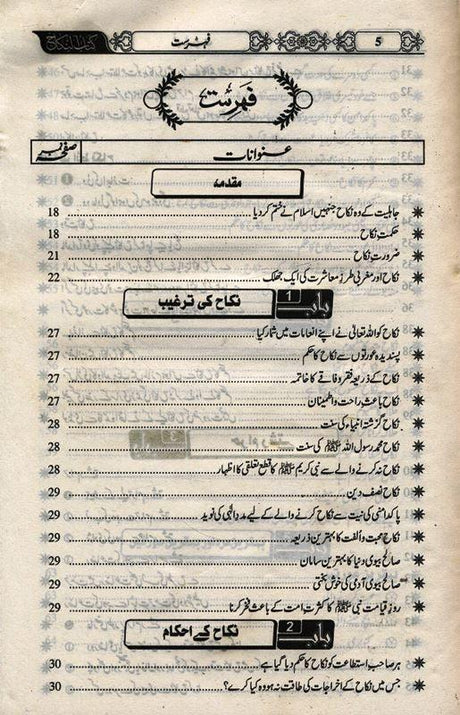 5 فہرست کتاب النکاح
فہرست
عنوانات صفحہ نمبر
مقدمہ
جاہلیت کے وہ نکاح جنہیں اسلام نے ختم کر دیا 18
حکمت نکاح 18
ضرورتِ نکاح 21
نکاح اور مغربی طرز معاشرت کی ایک جھلک 22
باب 1 نکاح کی ترغیب
نکاح کو اللہ تعالیٰ نے اپنے انعامات میں شمار کیا 27
پسندیدہ عورتوں سے نکاح کا حکم 27
نکاح کے ذریعہ فقر و فاقے کا خاتمہ 27
نکاح باعث راحت و اطمینان 27
نکاح گزشتہ انبیاء کی سنت 28
نکاح محمد رسول اللہ ﷺ کی سنت 28
نکاح نہ کرنے والے سے نبی کریم ﷺ کا قطع تعلقی کا اظہار 28
نکاح نصف دین 28
پاکدامنی کی نیت سے نکاح کرنے والے کے لیے مدد الٰہی کی نوید 29
نکاح محبت و الفت کا بہترین ذریعہ 29
صالح بیوی دنیا کا بہترین سامان 29
صالح بیوی آدمی کی خوش بختی 29
روزِ قیامت نبی ﷺ کا کثرت امت کے باعث فخر کرنا 29
باب 2 نکاح کے احکام
ہر صاحب استطاعت کو نکاح کا حکم دیا گیا ہے 30
جس میں نکاح کے اخراجات کی طاقت نہ ہو وہ کیا کرے؟ 30